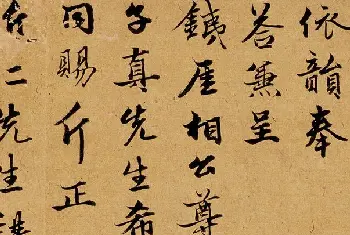 依韻奉
答兼呈
鐵厓相公尊
子真先生希
同賜斤正
二先生